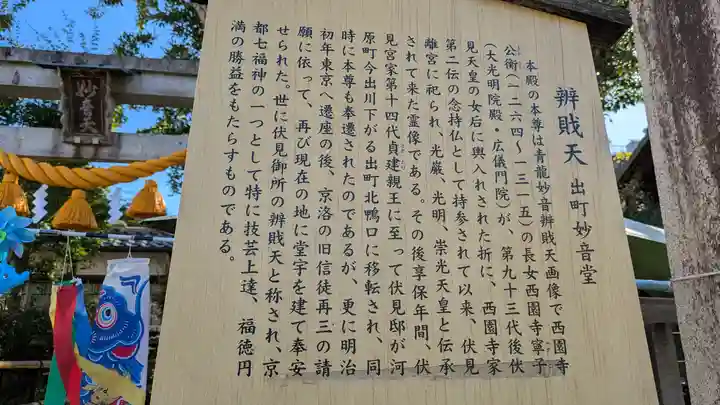 妙音天
辨財天 出町妙音堂
本殿の本尊は青龍妙音辨財天画像で西園寺
公衡(一二六四〜一三一五)の長女西園寺寧子
(大光明院殿・広儀門院)が、第九十三代後伏
見天皇の女后に輿入れされた折に、西園寺家
第二伝の念持仏として持参されて以来、伏見
離宮に祀られ、光厳、光明、崇光天皇と伝承
されて来た霊像である。その後享保年間、伏
見宮家第十四代貞建親王に至って伏見邸が河
原町今出川下がる出町北鴨口に移転され、同
時に本尊も奉遷されたのであるが、更に明治
初年東京へ遷座の後、京洛の旧信徒再三の請
願に依って、再び現在の地に堂宇を建て奉安
せられた。世に伏見御所の辨財天と称され、京
都七福神の一つとして特に技芸上達、福徳円
満の勝益をもたらすものである。